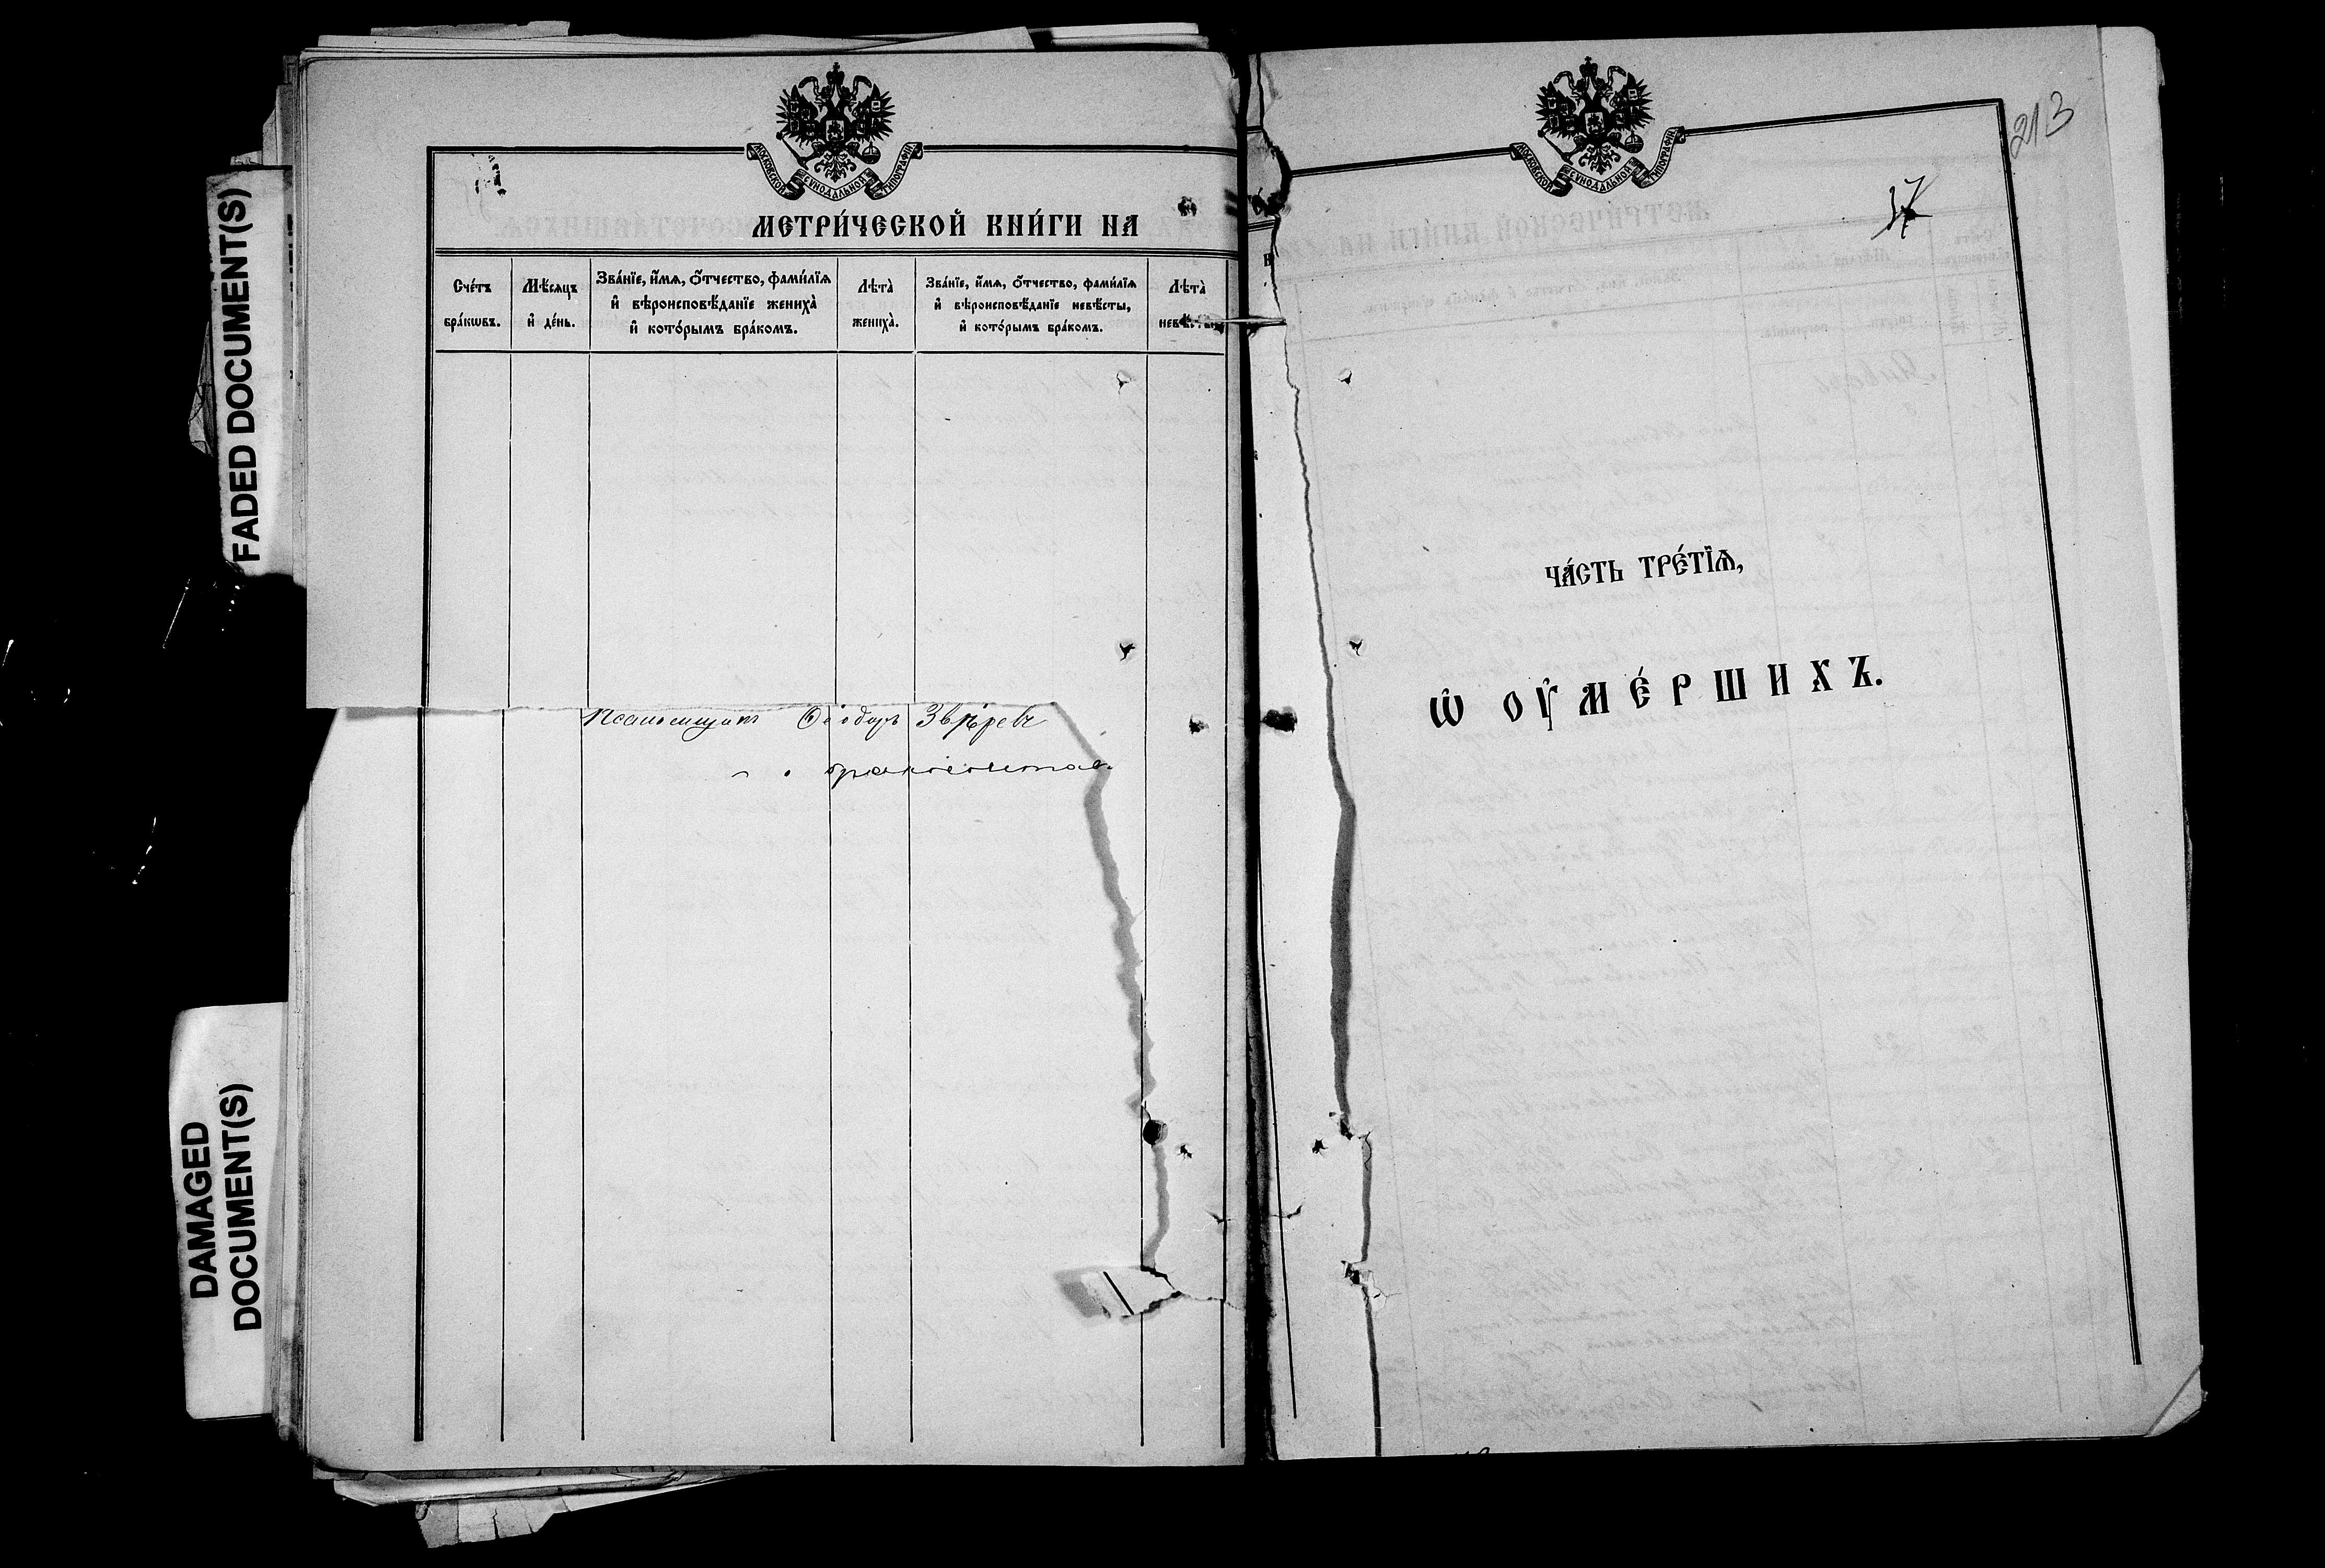 FADED DOCUMENT(S)
DAMAGED
DOCUMENT(S)
МОСКОВСКОЙ СѴНОДАЛЬНОЙ ТИПОГРАФІИ
МЕТРИ́ЧЕСКОЙ КНИ́ГИ НА
Сче́тъ
бра́кѡвъ.
Мѣ́сѧцъ
и҆ де́нь.
Зва́нїе, и҆́мѧ, ѻ҆́тчество, фами́лїѧ
и҆ вѣроисповѣ́данїе жениха̀
и҆ кото́рымъ бра́комъ.
Лѣта̀
жениха̀.
Зва́нїе, и҆́мѧ, ѻ҆́тчество, фами́лїѧ
и҆ вѣроисповѣ́данїе невѣ́сты,
и҆ кото́рымъ бра́комъ.
Лѣта̀
Псаломщикъ Ѳеодоръ Звѣревъ
МОСКОВСКОЙ СѴНОДАЛЬНОЙ ТИПОГРАФІИ
213
37
ЧА́СТЬ ТРЕ́ТЇѦ,
Ѡ҆ ОУ҆МЕ́РШИХЪ.